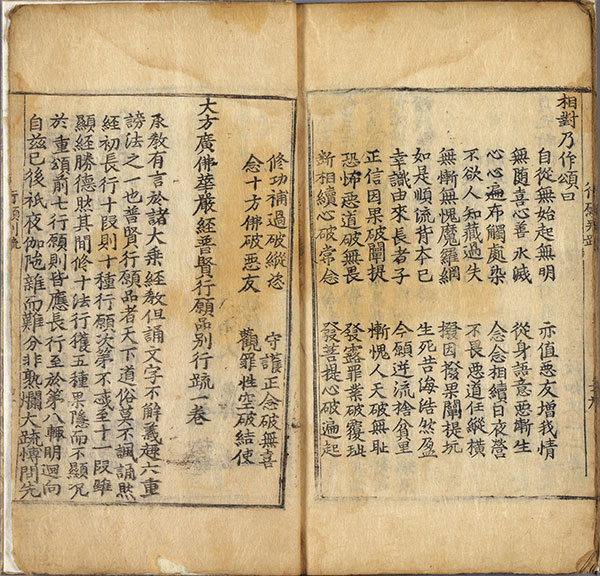 相對乃作頌曰
自從無始起無明　亦值惡友增我情
無隨喜心善永滅　從身語意惡漸生
心心遍布觸處染　念念相續日夜營
不欲人知藏過失　不畏惡道任縱橫
無慚無愧魔羅網　撥因撥果闡提坑
如是順流背本已　生死苦海結然盈
幸識由來長者子　今願逆流捨貧里
正信因果破闡提　慚愧人天破無恥
恐怖惡道破無畏　發露罪業破覆玼
斷相續心破常念　發菩提心破遍起
修功補過破縱恣　守護正念破無喜
念十方佛破惡友　觀罪性空破結使
大方廣佛華嚴經普賢行願品別行䟽一卷
承教有言於諸大乘經教但誦文字不解義趣六重
謗法之一也普賢行願品者天下道俗莫不諷誦然
經初長行十段則十種行願次第不忒至十一段雖
顯經勝德然其間修十法行獲五種果隱而不顯况
於重頌前七行願則皆應長行至於第八輒明迴向
自茲已後祇夜伽陁雜而難分非熟爛大䟽慱問先
行願別䟽